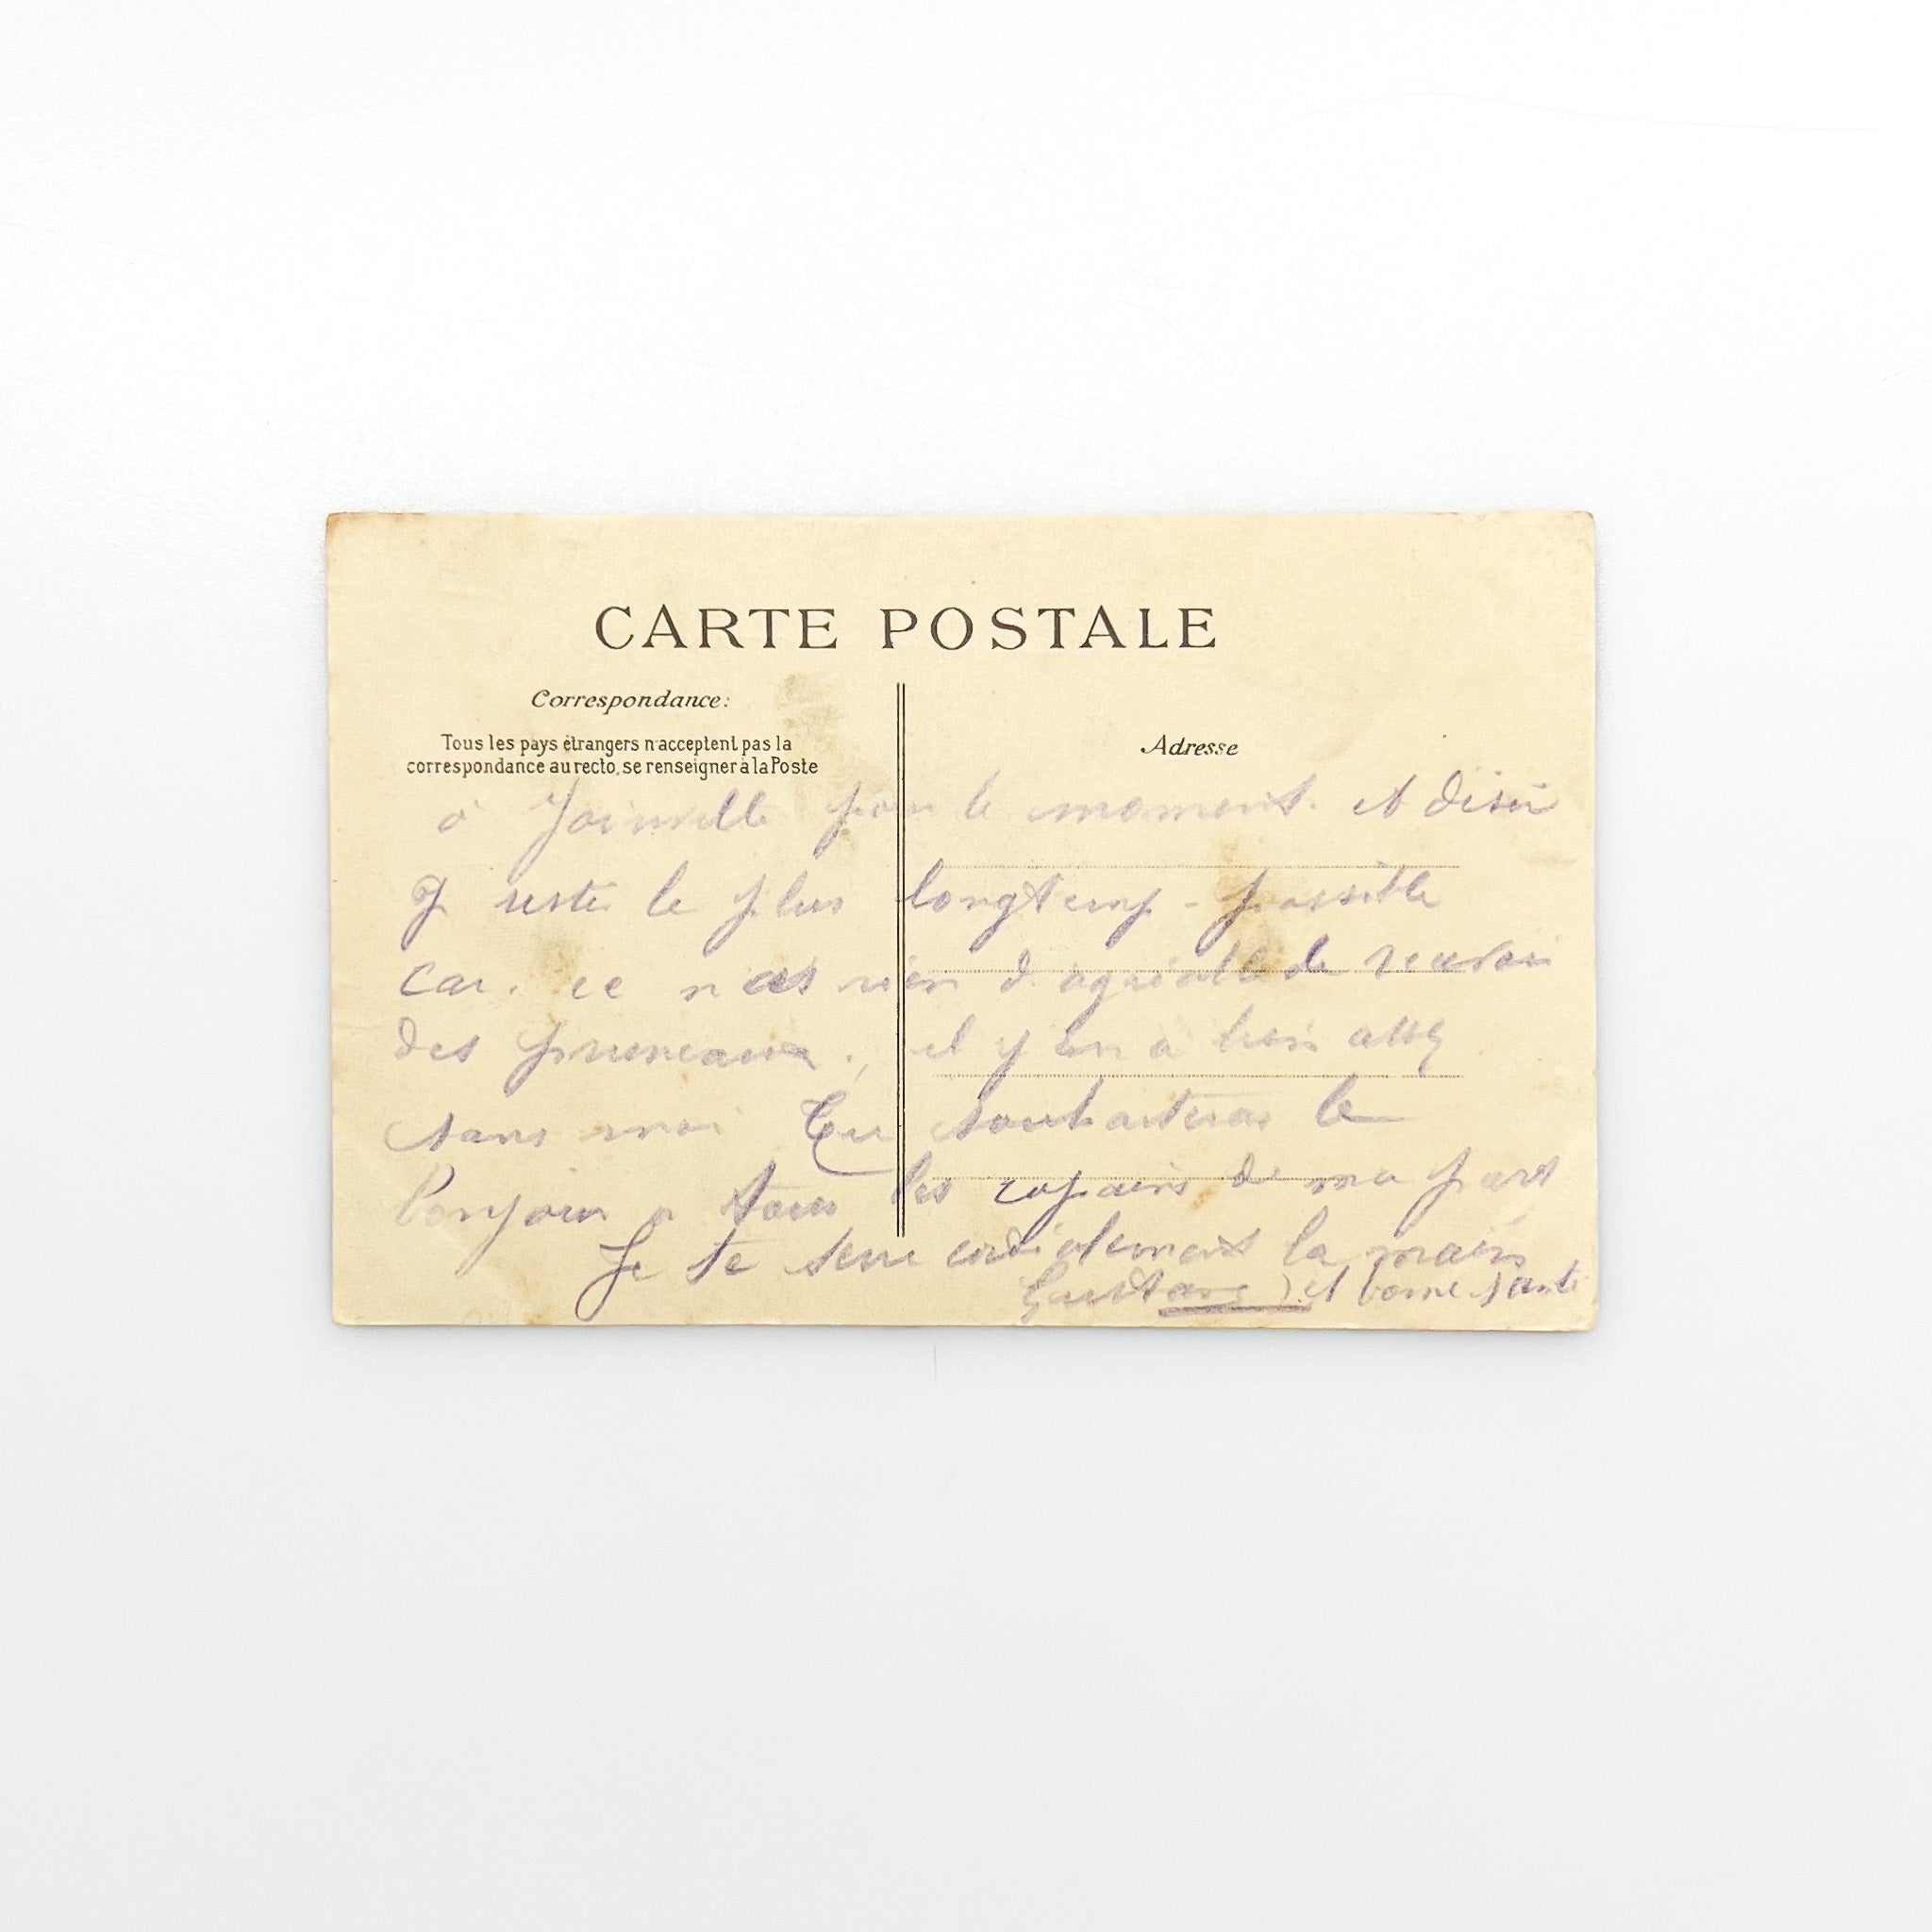 CARTE POSTALE
Correspondance:
Tous les pays étrangers n'acceptent pas la
correspondance au recto, se renseigner à la Poste
Adresse
à Joinville pour le moment. et désir
y reste le plus longtemp - possible
car. ce n'ai rien d'agréable de recevoir
des pruneaux. il y en a bien assez
sans moi Tu souhaiteras le
bonjour a tous les copains de ma part
Je te serre cordialement la main
Gustave et bonne santé